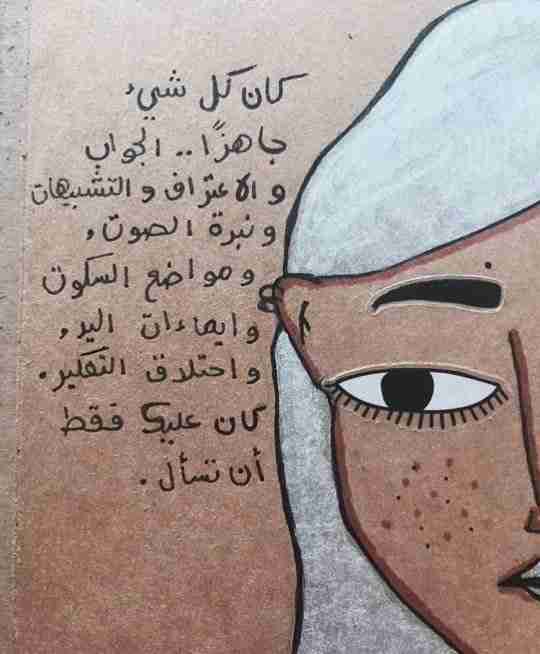 كان كل شيء
جاهزًا.. الجواب
والاعتراف والتشبيهات
ونبرة الصوت،
ومواضع السكوت
وايماءات اليد،
واختلاق التفكير.
كان عليك فقط
أن تسأل.